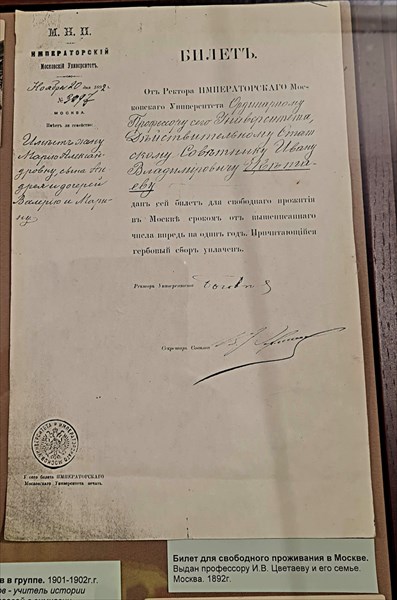 М. Н. П.
ИМПЕРАТОРСКІЙ
Московскій Университетъ.
Ноября 20 дня 1892 г.
№ 3097
МОСКВА.
Имѣетъ ли семейство:
Имѣетъ жену
Марію Александ
ровну, сына Ан
дрея и дочерей
Валерію и Мари
ну
БИЛЕТЪ.
Отъ Ректора ИМПЕРАТОРСКАГО Мос-
ковскаго Университета Ординарному
Профессору сего Университета,
Дѣйствительному Стат
скому Совѣтнику Ивану
Владиміровичу Цвѣта
еву
данъ сей билетъ для свободнаго прожитія
въ Москвѣ срокомъ отъ вышеписаннаго
числа впредь на одинъ годъ. Причитающійся
гербовый сборъ уплаченъ.
Ректоръ Университета
Секретарь Совѣта
У сего билета ИМПЕРАТОРСКАГО
Московскаго Университета печать.
в в группе. 1901-1902г.г.
ов - учитель истории
Билет для свободного проживания в Москве.
Выдан профессору И.В. Цветаеву и его семье.
Москва. 1892г.